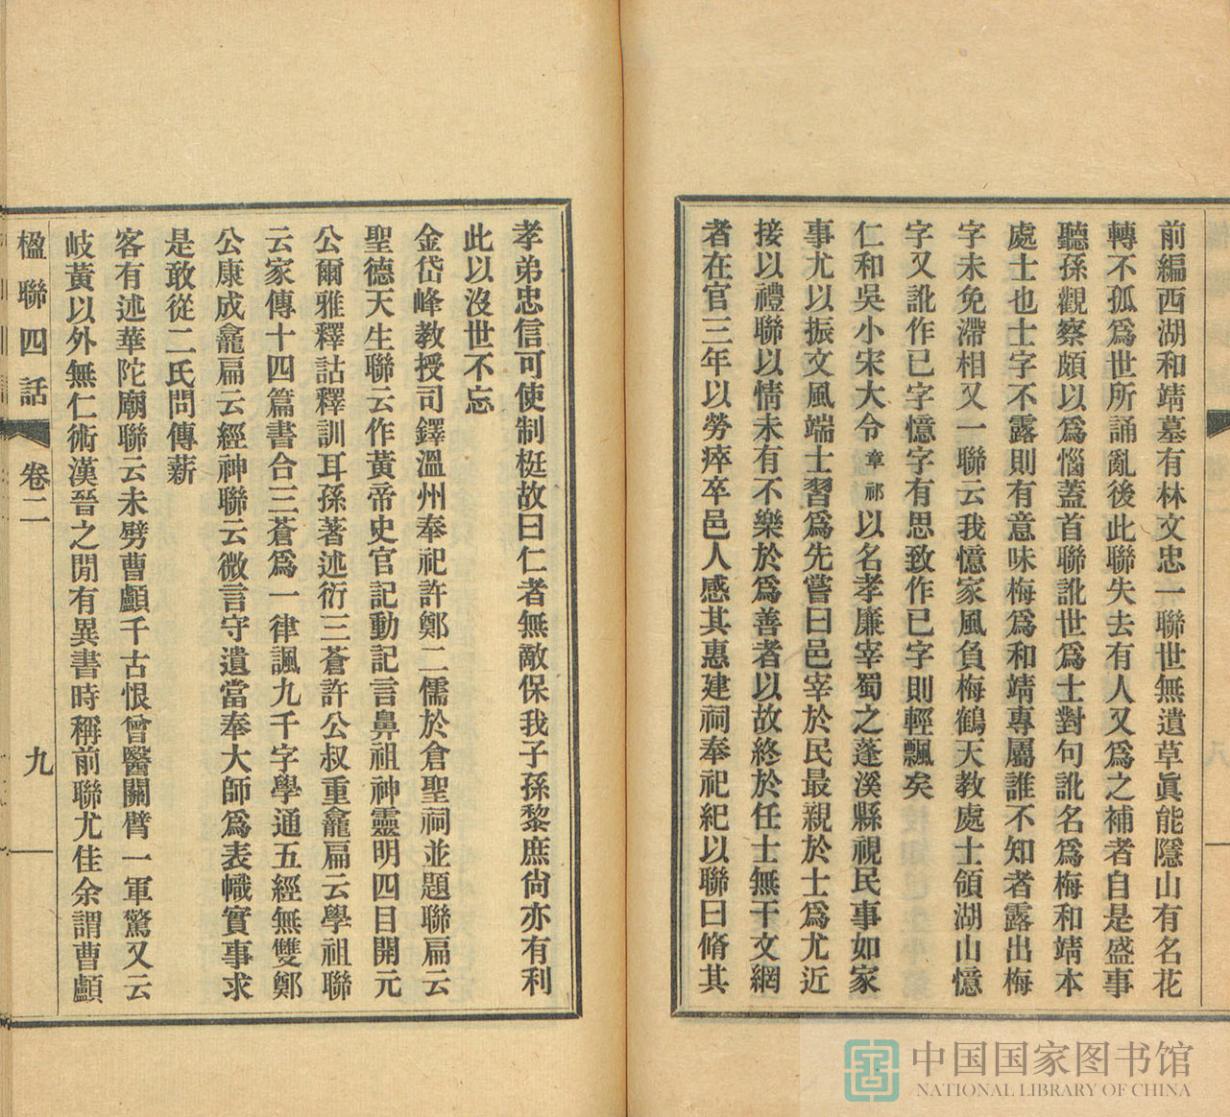 前編西湖和靖墓有林文忠一聯世無遺草眞能隱山有名花
轉不孤爲世所誦亂後此聯失去有人又爲之補者自是盛事
聽孫觀察頗以爲惱蓋首聯訛世爲士對句訛名爲梅和靖本
處士也士字不露則有意味梅爲和靖專屬誰不知者露出梅
字未免滯相又一聯云我憶家風負梅鶴天教處士領湖山憶
字又訛作已字憶字有思致作已字則輕飄矣
仁和吳小宋大令章祁以名孝廉宰蜀之蓬溪縣視民事如家
事尤以振文風端士習爲先嘗曰邑宰於民最親於士爲尤近
接以禮聯以情未有不樂於爲善者以故終於任士無干文網
者在官三年以勞瘁卒邑人感其惠建祠奉祀紀以聯曰脩其
孝弟忠信可使制梃故曰仁者無敵保我子孫黎庶尙亦有利
此以沒世不忘
金岱峰教授司鐸溫州奉祀許鄭二儒於倉聖祠並題聯扁云
聖德天生聯云作黃帝史官記動記言鼻祖神靈明四目開元
公爾雅釋詁釋訓耳孫著述衍三蒼許公叔重龕扁云學祖聯
云家傳十四篇書合三蒼爲一律諷九千字學通五經無雙鄭
公康成龕扁云經神聯云微言守遺當奉大師爲表幟實事求
是敢從二氏問傳薪
客有述華陀廟聯云未劈曹顱千古恨曾醫關臂一軍驚又云
岐黃以外無仁術漢晉之閒有異書時稱前聯尤佳余謂曹顱
楹聯四話
卷二
九
中国国家图书馆
NATIONAL LIBRARY OF CHINA